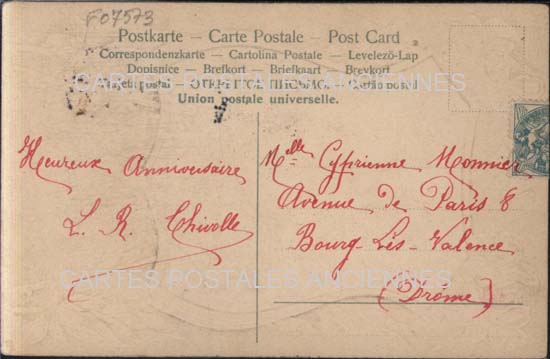 F07573
Postkarte — Carte Postale — Post Card
Correspondenzkarte — Cartolina Postale — Levelező-Lap
Dopisnice — Brefkort — Briefkaart — Brevkort
Tarjeta postal — ОТКРЫТОЕ ПИСЬМО — Cartão postal
Union postale universelle.
CARTES POSTALES ANCIENNES
Heureux Anniversaire
L. R. Chivolle
Melle Cyprienne Monnier
Avenue de Paris 8
Bourg-Lès-Valence
(Drôme)
CARTES POSTALES ANCIENNES